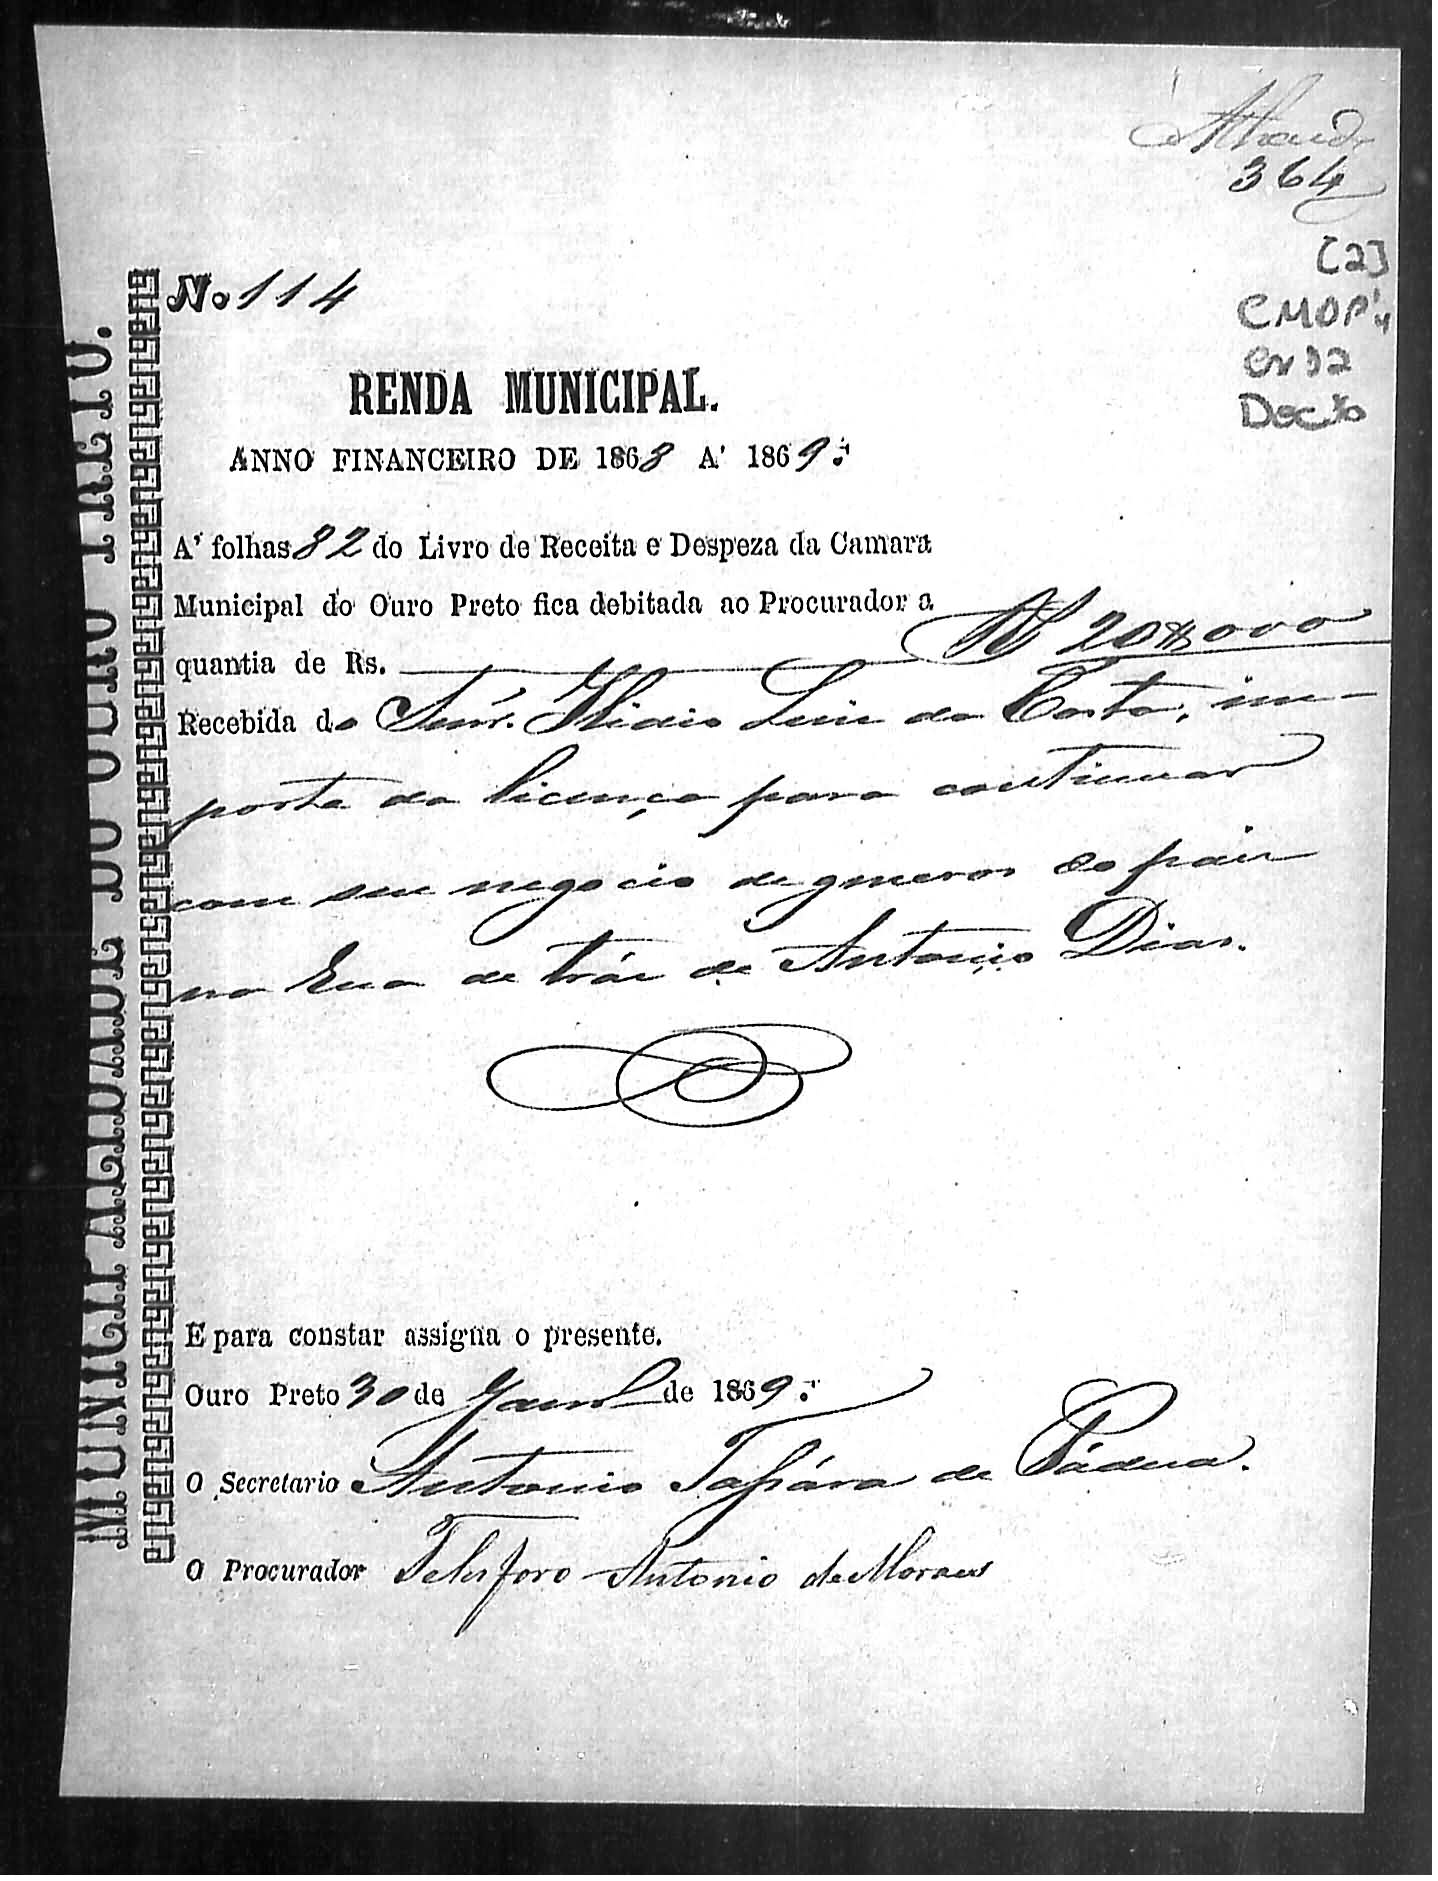 364
[2]
CMOP
Nº 114
RENDA MUNICIPAL.
ANNO FINANCEIRO DE 1868 A' 1869.
A' folhas 82 do Livro de Receita e Despeza da Camara
Municipal do Ouro Preto fica debitada ao Procurador a
quantia de Rs. 20$000
Recebida do Snr. Ilidio Luis da Costa, im-
porte da licença para continuar
com seu negocio de generos do paiz
na Rua de tráz de Antonio Dias.
E para constar assigna o presente.
Ouro Preto 30 de de 1869.
O Secretario Antonio de Pádua.
O Procurador Telesforo Antonio de Moraes
MUNICIPALIDADE DO OURO PRETO.